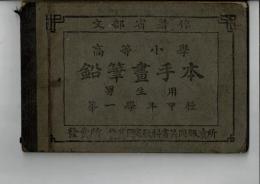 文部省著作
高等小學
鉛筆畫手本
男生用
第一學年甲種